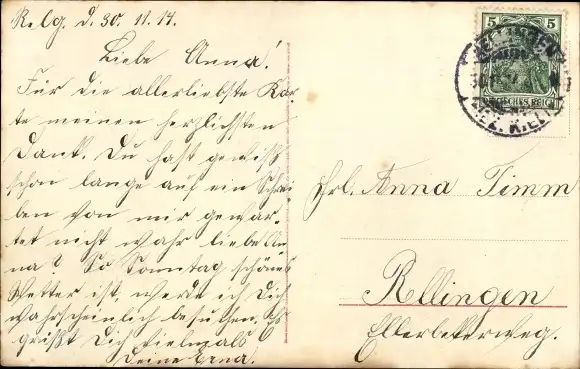 Relg. d. 30. 11. 14.
Liebe Anna!
Für die allerliebste Kar-
te meinen herzlichsten
Dank. Du hast gewiß
schon lange auf ein Schrei-
ben von mir gewar-
tet nicht wahr liebe An-
na? So Sonntag schönes
Wetter ist, werde ich Dich
wahrscheinlich besuchen. Es
grüßt Dich vielmals
Deine Erna.
5 5
DEUTSCHES REICH
RELLINGEN
BEZ. KIEL
Frl. Anna Timm
Rellingen
Ellerbekerweg.